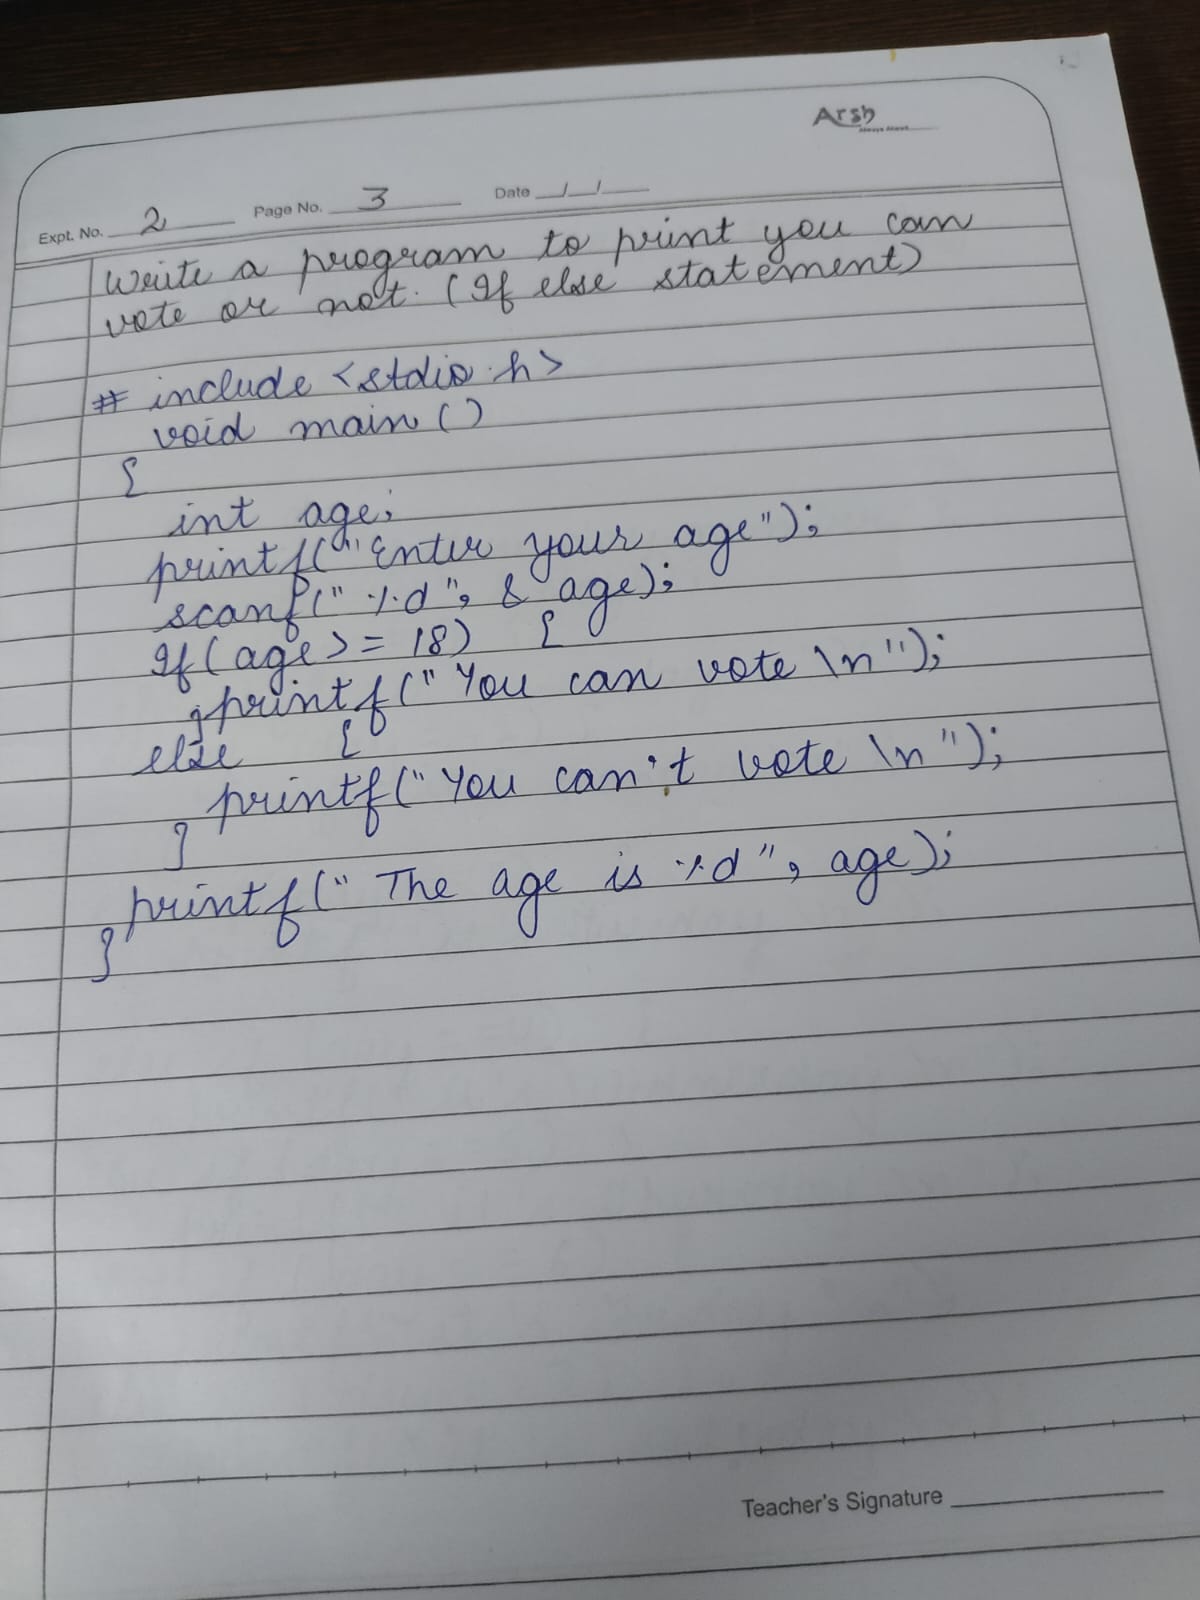 Arsh
Always Ahead
Expt. No. 2 Page No. 3 Date / /
Write a program to print you can
vote or not. (If else statement)
# include <stdio.h>
void main ()
{
int age;
printf(" Enter your age");
scanf(" %d ", & age);
If (age >= 18) {
printf(" You can vote \n");
}
else {
printf(" You can't vote \n");
}
printf(" The age is %d ", age);
}
Teacher's Signature